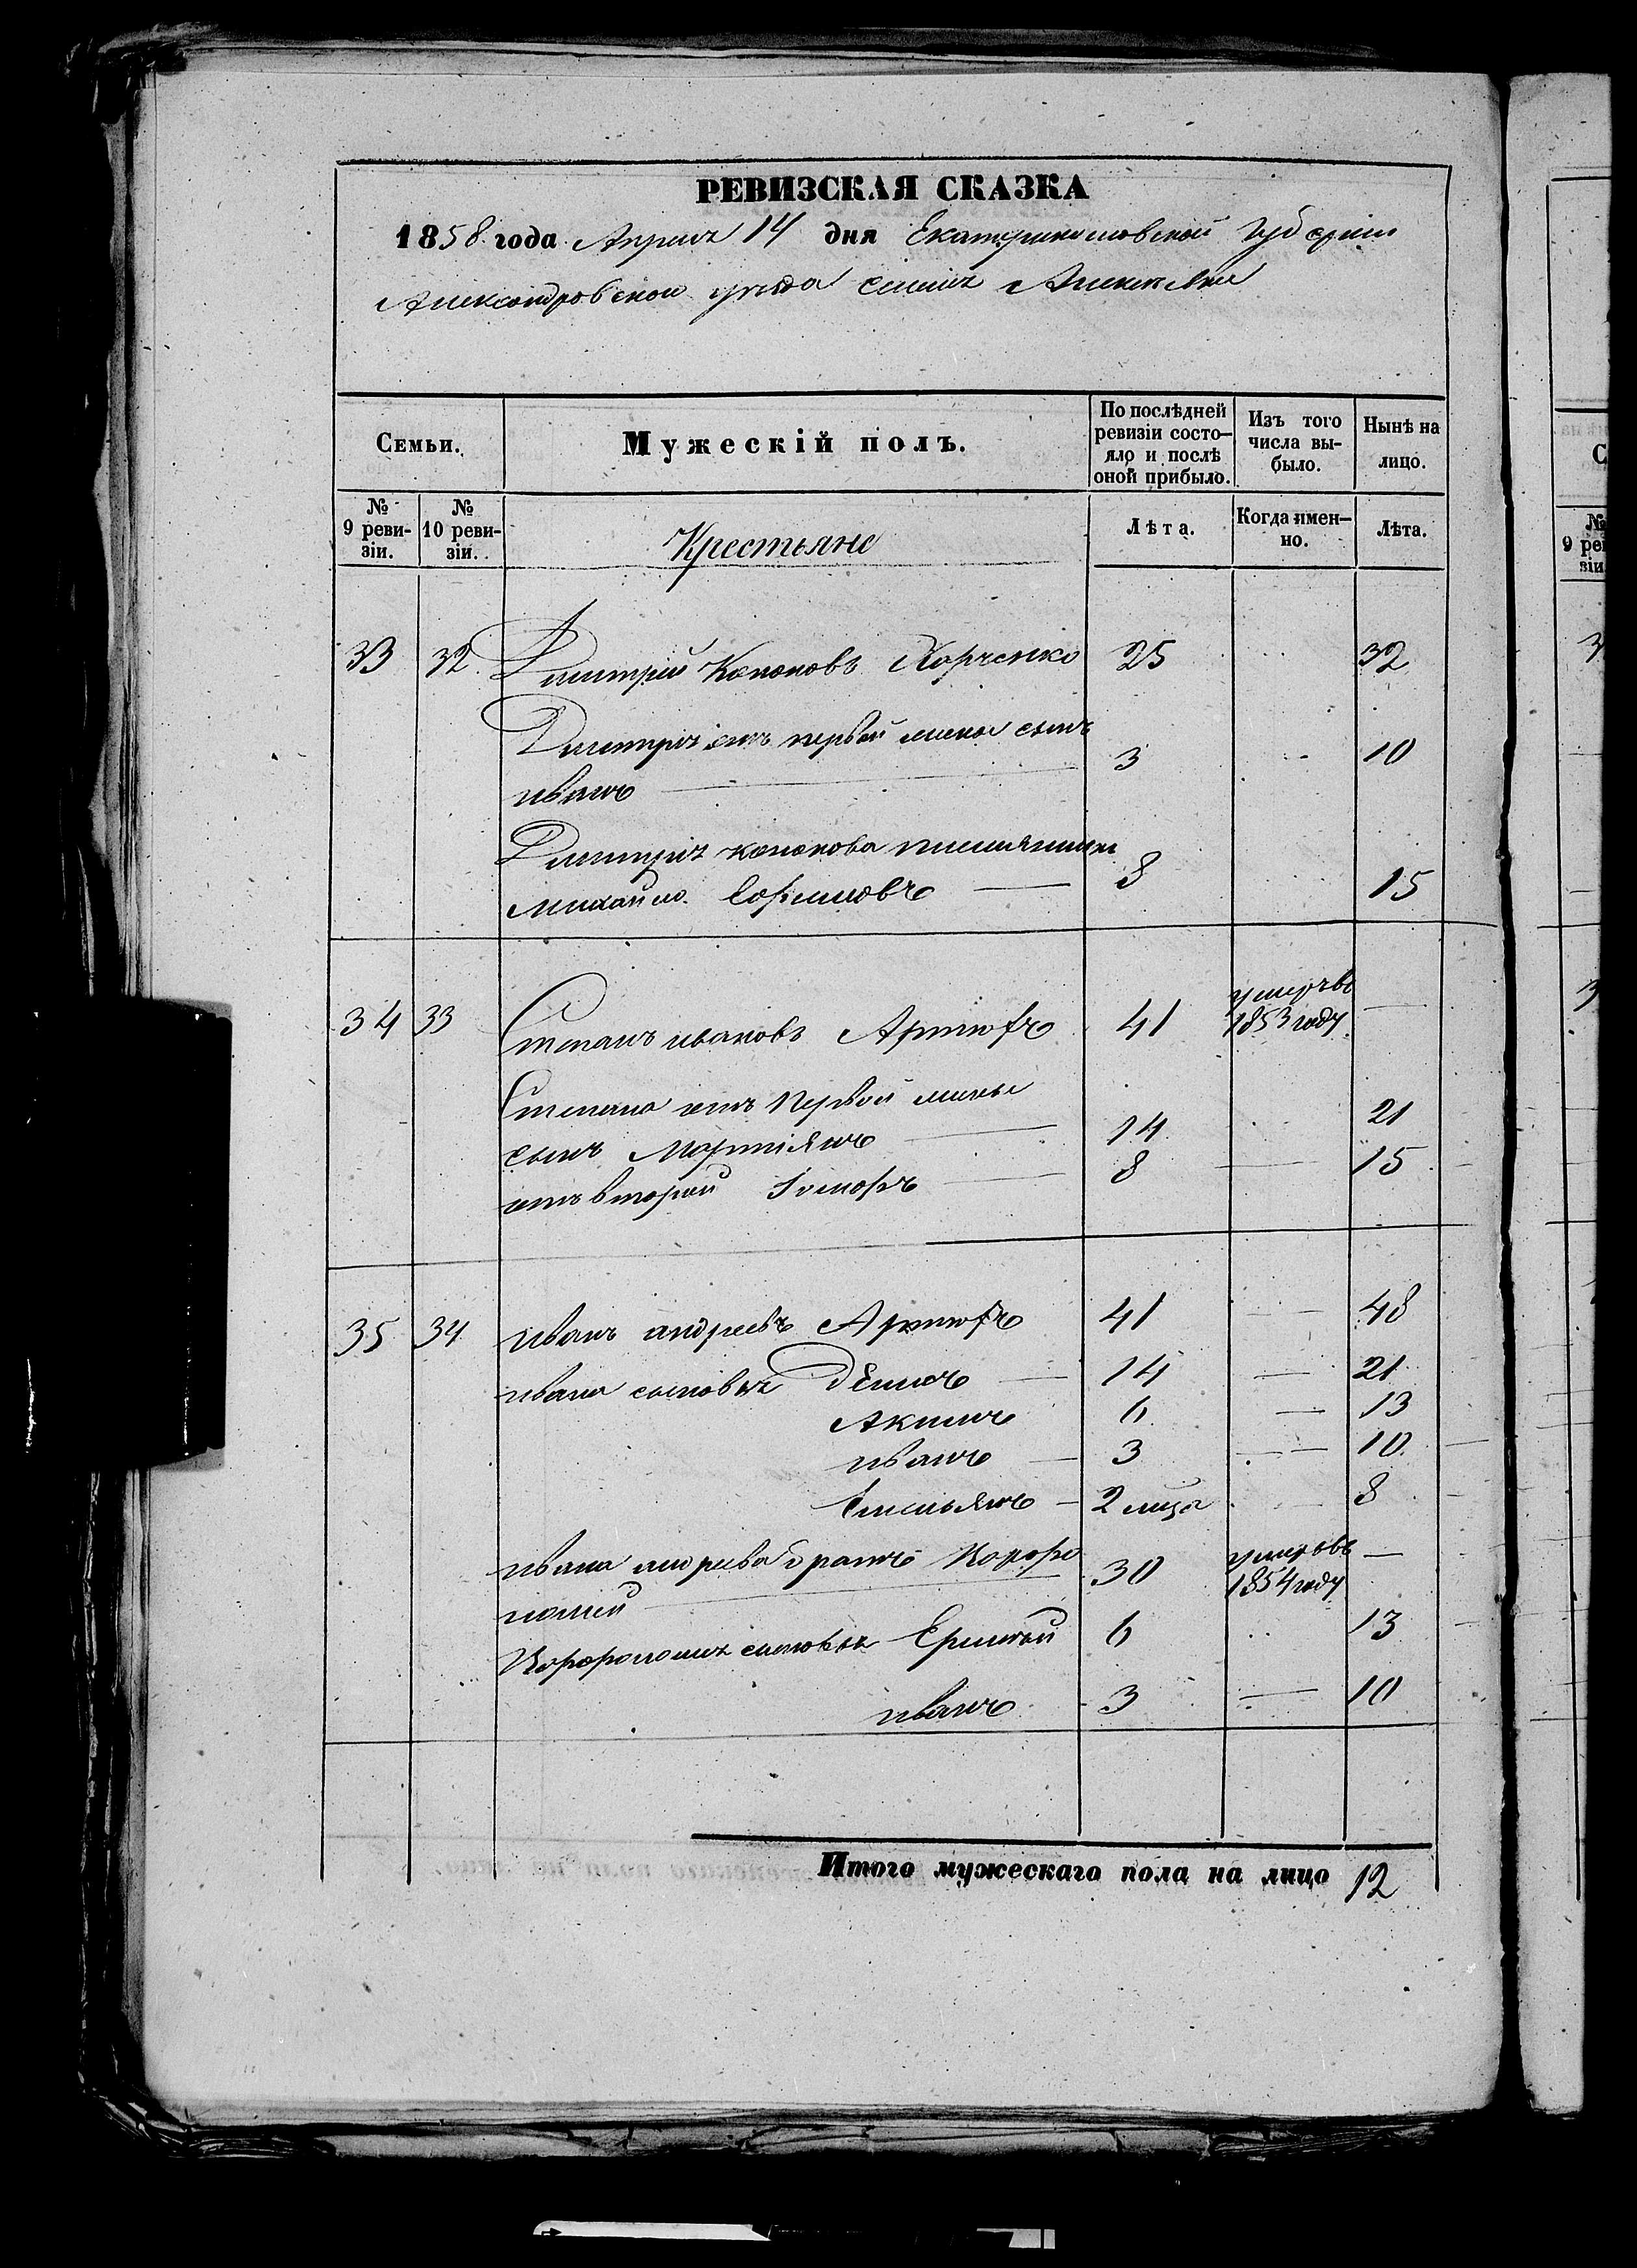 РЕВИЗСКАЯ СКАЗКА
1858 года Апреля 14 дня Екатеринославской Губернии
Александровского уезда
Семьи.
Мужескій полъ.
По послѣдней ревизіи состо-яло и послѣ оной прибыло.
Изъ того числа вы-было.
Нынѣ на лицо.
№ 9 реви-зіи.
№ 10 реви-зіи.
Крестьяне
Лѣта.
Когда имен-но.
Лѣта.
33 32 Дмитрий Кононовъ Харченко 25 32
Дмитрия отъ первой жены сынъ
иванъ 3 10
Дмитрия кононова племянникъ
Михайло 8 15
34 33 Степанъ ивановъ Артюхъ 41 умеръ въ 1853 году
Степана отъ первой жены
сынъ Мартиянъ 14 21
отъ второй 8 15
35 34 иванъ андреевъ Артюхъ 41 48
ивана сыновья 14 21
Акимъ 6 13
иванъ 3 10
Емельянъ 2 8
ивана андреева братъ
30 умеръ въ 1854 году
сыновья Ермолай 6 13
иванъ 3 10
Итого мужескаго пола на лицо 12
№
9 рев
зіи